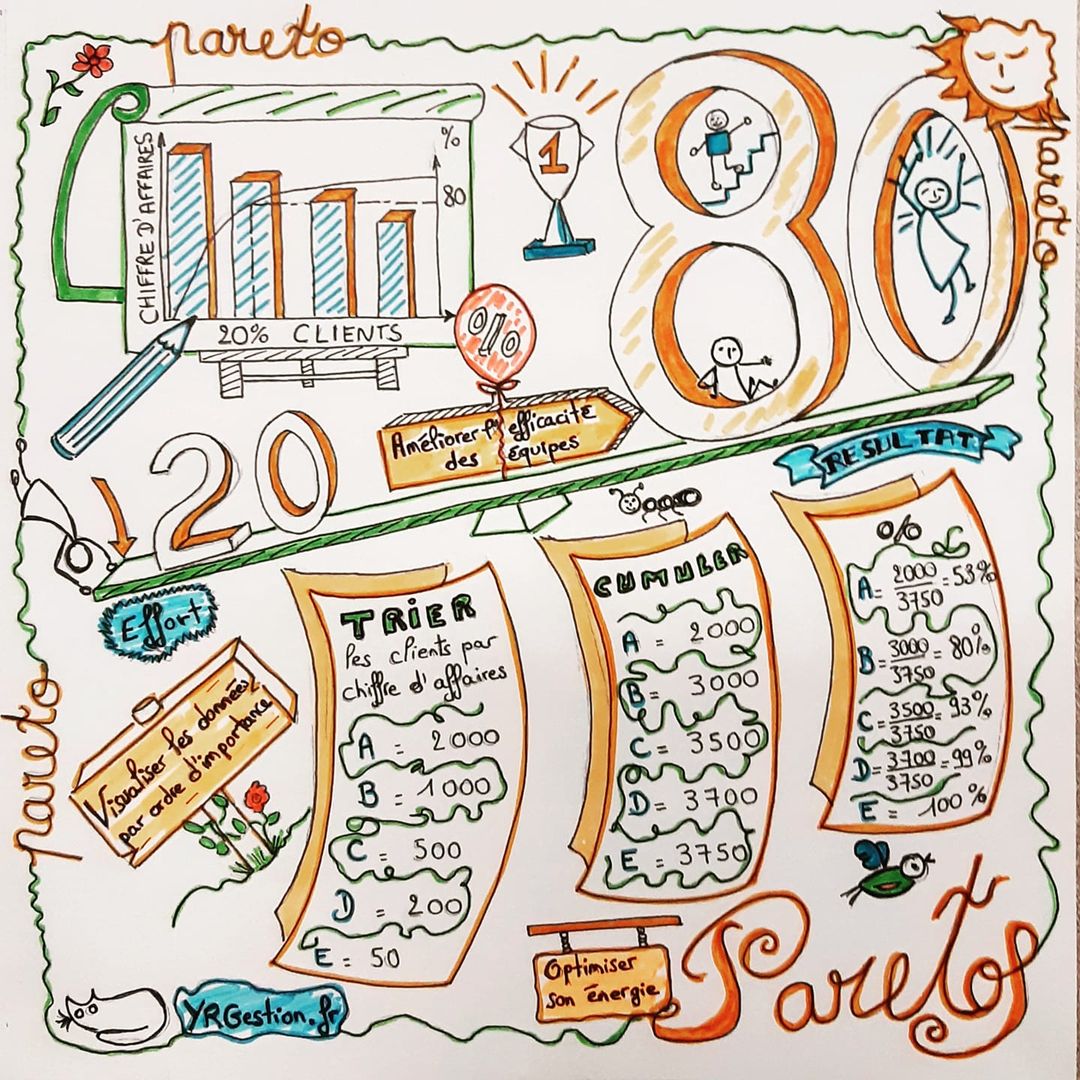 pareto
pareto
CHIFFRE D'AFFAIRES
%
80
20% CLIENTS
1
80
%
Améliorer l'efficacité
des équipes
20
RESULTAT
Effort
TRIER
les clients par
chiffre d'affaires
A = 2000
B = 1000
C = 500
D = 200
E = 50
CUMULER
A = 2000
B = 3000
C = 3500
D = 3700
E = 3750
%
A = 2000/3750 = 53%
B = 3000/3750 = 80%
C = 3500/3750 = 93%
D = 3700/3750 = 99%
E = 100%
pareto
Visualiser les données
par ordre d'importance
Optimiser
son énergie
Pareto
YRGestion.fr